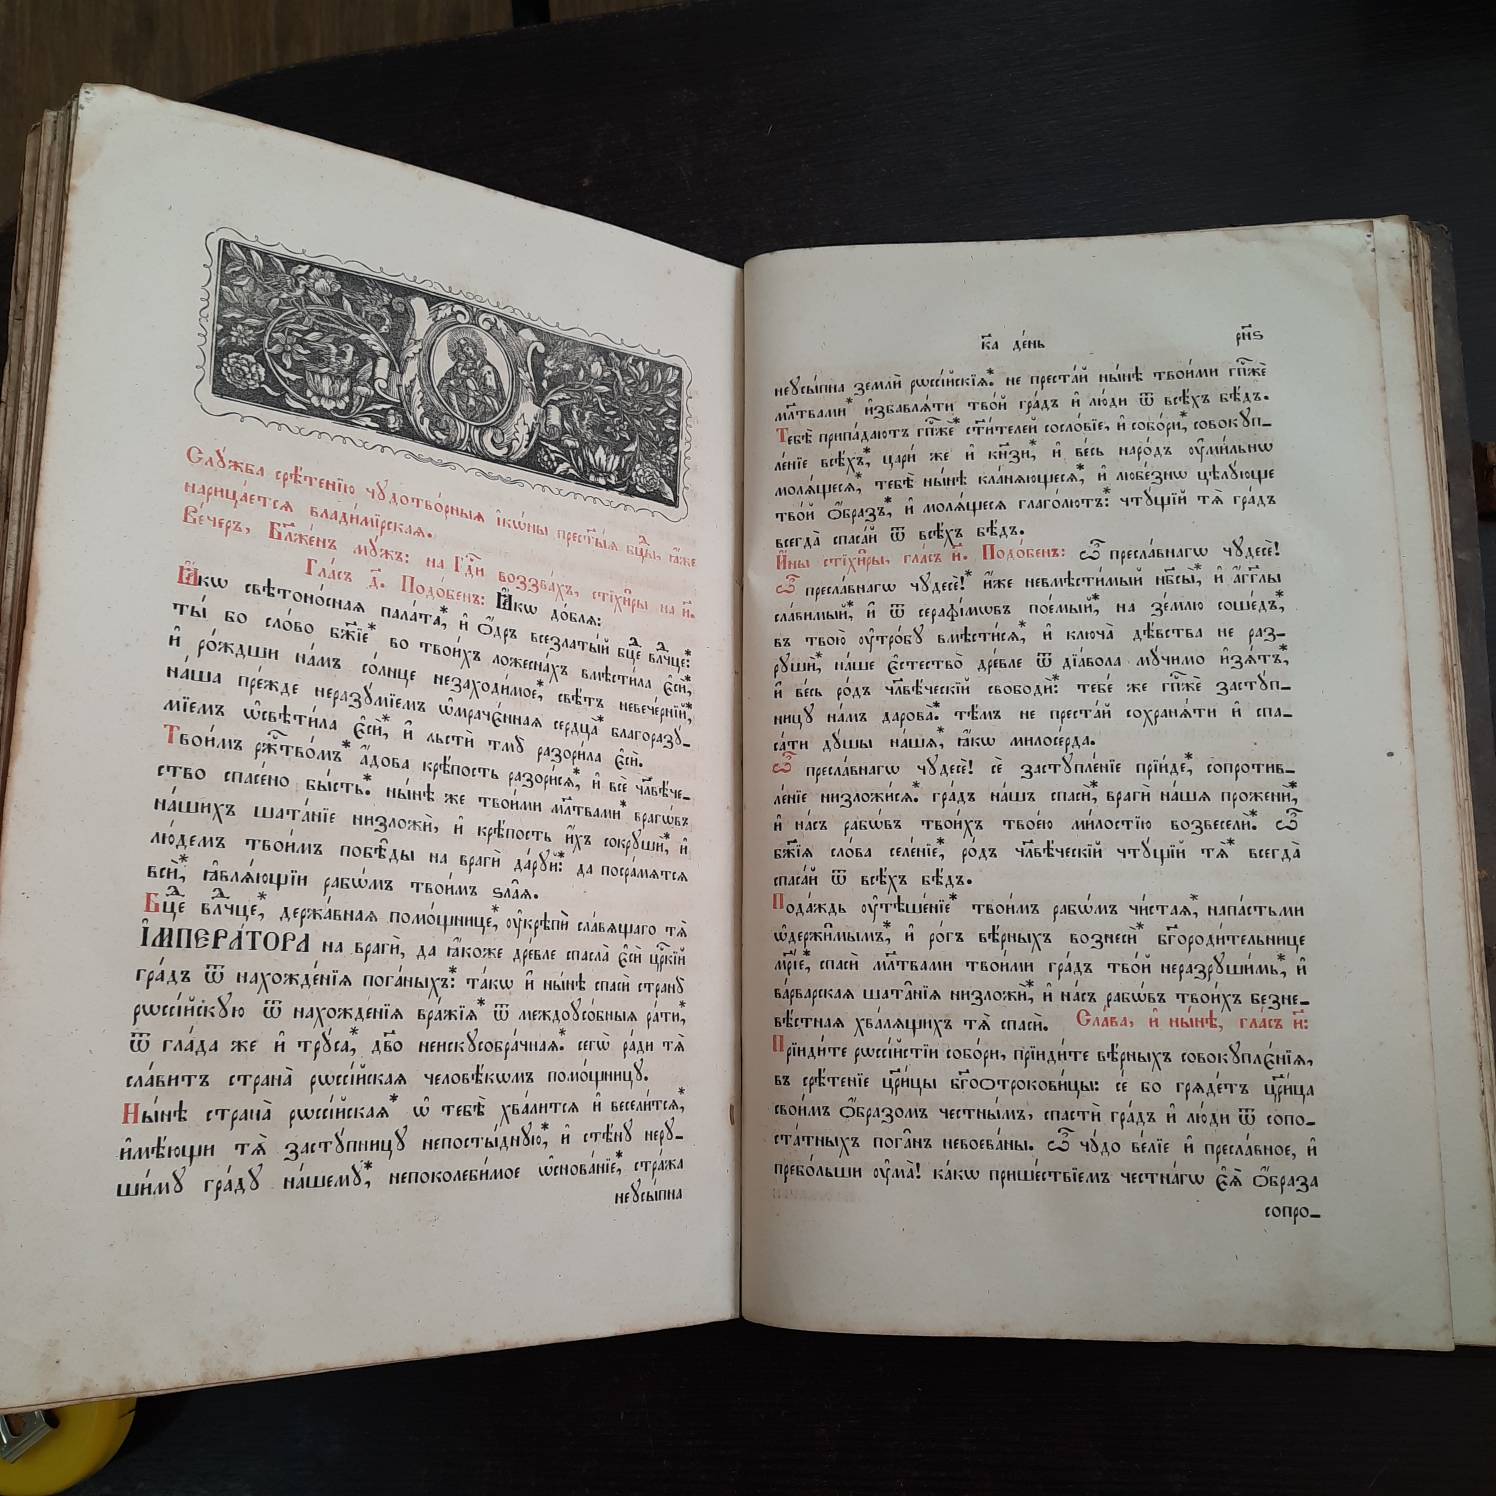 Слꙋ́жба срѣ́тенїю чꙋдотво́рныѧ і҆кѡ́ны прест҃ы́ѧ бц҃ы, ꙗ҆́же
нарица́етсѧ влади́мірскаѧ.
Ве́черъ, Бл҃же́нъ мꙋ́жъ: на Гдⷭ҇и воззва́хъ, стїхи̑ры на и҃.
Гла́съ д҃. Подо́бенъ: Ꙗ҆́кѡ до́блѧ:
Ꙗ҆́кѡ свѣтоно́снаѧ пала́та*, и҆ ѻ҆́дръ всезлаты́й бц҃е влⷣчце:*
ты́ бо сло́во бж҃їе* во твои́хъ ложесна́хъ вмѣсти́ла є҆сѝ*,
и҆ ро́ждши на́мъ со́лнце незаходи́мое*, свѣ́тъ невече́рнїй*,
на́ша пре́жде неразꙋ́мїемъ ѡ҆мраче́ннаѧ сердца̀* благоразꙋ́-
мїемъ ѡ҆свѣти́ла є҆сѝ*, и҆ льстѝ тмꙋ̀ разори́ла є҆сѝ.
Твои́мъ ржⷭ҇тво́мъ* а҆́дова крѣ́пость разори́сѧ*, и҆ всѐ чл҃вѣ́че-
ство спасе́но бы́сть.* ны́нѣ же твои́ми мл҃твами* врагѡ́въ
на́шихъ шата́нїе низложѝ, и҆ крѣ́пость и҆́хъ сокрꙋшѝ*, и҆
лю́демъ твои́мъ побѣ̑ды на врагѝ да́рꙋй:* да посра́мѧтсѧ
всѝ*, ꙗ҆влѧ́ющїи рабѡ́мъ твои́мъ ѕла̑ѧ.
Бц҃е влⷣчце*, держа́внаѧ помо́щнице*, ᲂу҆крѣпѝ сла́вѧщаго тѧ̀
І҆МПЕРА́ТОРА на врагѝ, да ꙗ҆́коже дре́вле спасла̀ є҆сѝ црⷭ҇кїй
гра́дъ ѿ нахожде́нїѧ пога́ныхъ:* та́кѡ и҆ ны́нѣ спасѝ странꙋ̀
рѡссі́йскꙋю ѿ нахожде́нїѧ вра́жїѧ* ѿ междоꙋсо́бныѧ ра́ти*,
ѿ гла́да же и҆ трꙋ́са*, дв҃о неискꙋсобра́чнаѧ.* сегѡ̀ ра́ди тѧ̀
сла́витъ страна̀ рѡссі́йскаѧ человѣ́кѡмъ помо́щницꙋ.
Ны́нѣ страна̀ рѡссі́йскаѧ* ѡ҆ тебѣ̀ хва́литсѧ и҆ весели́тсѧ*,
и҆мѣ́ющи тѧ̀ застꙋ́пницꙋ непосты́днꙋю*, и҆ стѣ́нꙋ нерꙋ-
ши́мꙋ гра́дꙋ на́шемꙋ*, непоколеби́мое ѡ҆снова́нїе*, стра́жа
неꙋсы́пна
к҃а де́нь
рн҃ѕ
неꙋсы́пна землѝ рѡссі́йскїѧ.* не преста́й ны́нѣ твои́ми гпⷭ҇жѐ
мл҃твами* и҆збавлѧ́ти тво́й гра́дъ и҆ лю́ди ѿ всѣ́хъ бѣ́дъ.
Тебѣ̀ припа́даютъ гпⷭ҇жѐ* ст҃и́телей сосло́вїе, и҆ собо́ри*, совокꙋп-
ле́нїе всѣ́хъ*, цари́ же и҆ кн҃зи*, и҆ ве́сь наро́дъ ᲂу҆ми́льнѡ
молѧ́щесѧ*, тебѣ̀ ны́нѣ кла́нѧющесѧ*, и҆ любе́знѡ цѣлꙋ́юще
тво́й ѻ҆́бразъ*, и҆ молѧ́щесѧ глаго́лютъ:* чтꙋ́щїй тѧ̀ гра́дъ
всегда̀ спаса́й ѿ всѣ́хъ бѣ́дъ.
И҆́ны стїхи̑ры, гла́съ и҃. Подо́бенъ: Ѽ пресла́внагѡ чꙋдесѐ!
Ѽ пресла́внагѡ чꙋдесѐ!* и҆́же невмѣсти́мый нб҃сы̀*, и҆ а҆́гг҃лы
сла́вимый*, и҆ ѿ серафі́мѡвъ пое́мый*, на зе́млю соше́дъ*,
въ твою̀ ᲂу҆тро́бꙋ вмѣсти́сѧ*, и҆ ключа̀ дѣ́вства не раз-
рꙋшѝ*, на́ше є҆стество̀ дре́вле ѿ дїа́вола мꙋ́чимо и҆з̾ѧ́тъ*,
и҆ ве́сь ро́дъ чл҃вѣ́ческїй свободѝ:* тебе́ же гпⷭ҇жѐ застꙋ́п-
ницꙋ на́мъ дарова̀.* тѣ́мъ не преста́й сохранѧ́ти и҆ спа-
са́ти дꙋ́шы на́шѧ*, ꙗ҆́кѡ милосе́рда.
Ѽ пресла́внагѡ чꙋдесѐ! сѐ застꙋпле́нїе прїи́де*, сопротив-
ле́нїе низложи́сѧ.* гра́дъ на́шъ спасѝ*, врагѝ на́шѧ прожени́*,
и҆ на́съ рабѡ́въ твои́хъ твое́ю ми́лостїю возвеселѝ.* ѽ
бж҃їѧ сло́ва селе́нїе*, ро́дъ чл҃вѣ́ческїй чтꙋ́щїй тѧ̀* всегда̀
спаса́й ѿ всѣ́хъ бѣ́дъ.
Пода́ждь ᲂу҆тѣше́нїе* твои́мъ рабѡ́мъ чи́стаѧ*, напа́стьми
ѡ҆держи̑мымъ*, и҆ ро́гъ вѣ́рныхъ вознесѝ* бг҃ороди́тельнице
мр҃і́е*, спасѝ мл҃твами твои́ми гра́дъ тво́й неразрꙋши́мь*, и҆
ва́рварскаѧ шата̑нїѧ низложѝ*, и҆ на́съ рабѡ́въ твои́хъ безне-
вѣ́стнаѧ хва́лѧщихъ тѧ̀ спасѝ. Сла́ва, и҆ ны́нѣ, гла́съ и҃:
Прїиди́те рѡссі́йстїи собо́ри, прїиди́те вѣ́рныхъ совокꙋпле́нїѧ,
въ срѣ́тенїе цр҃и́цы бг҃оотрокови́цы: се́ бо грѧде́тъ цр҃и́ца
свои́мъ ѻ҆́бразомъ че́стнымъ, спастѝ гра́дъ и҆ лю́ди ѿ сопо-
ста́тныхъ пога̑нъ невоева́ны. ѽ чꙋ́до ве́лїе и҆ пресла́вное, и҆
пребо́льши ᲂу҆ма̀! ка́кѡ прише́ствїемъ че́стнагѡ є҆ѧ̀ ѻ҆́браза
сопро-